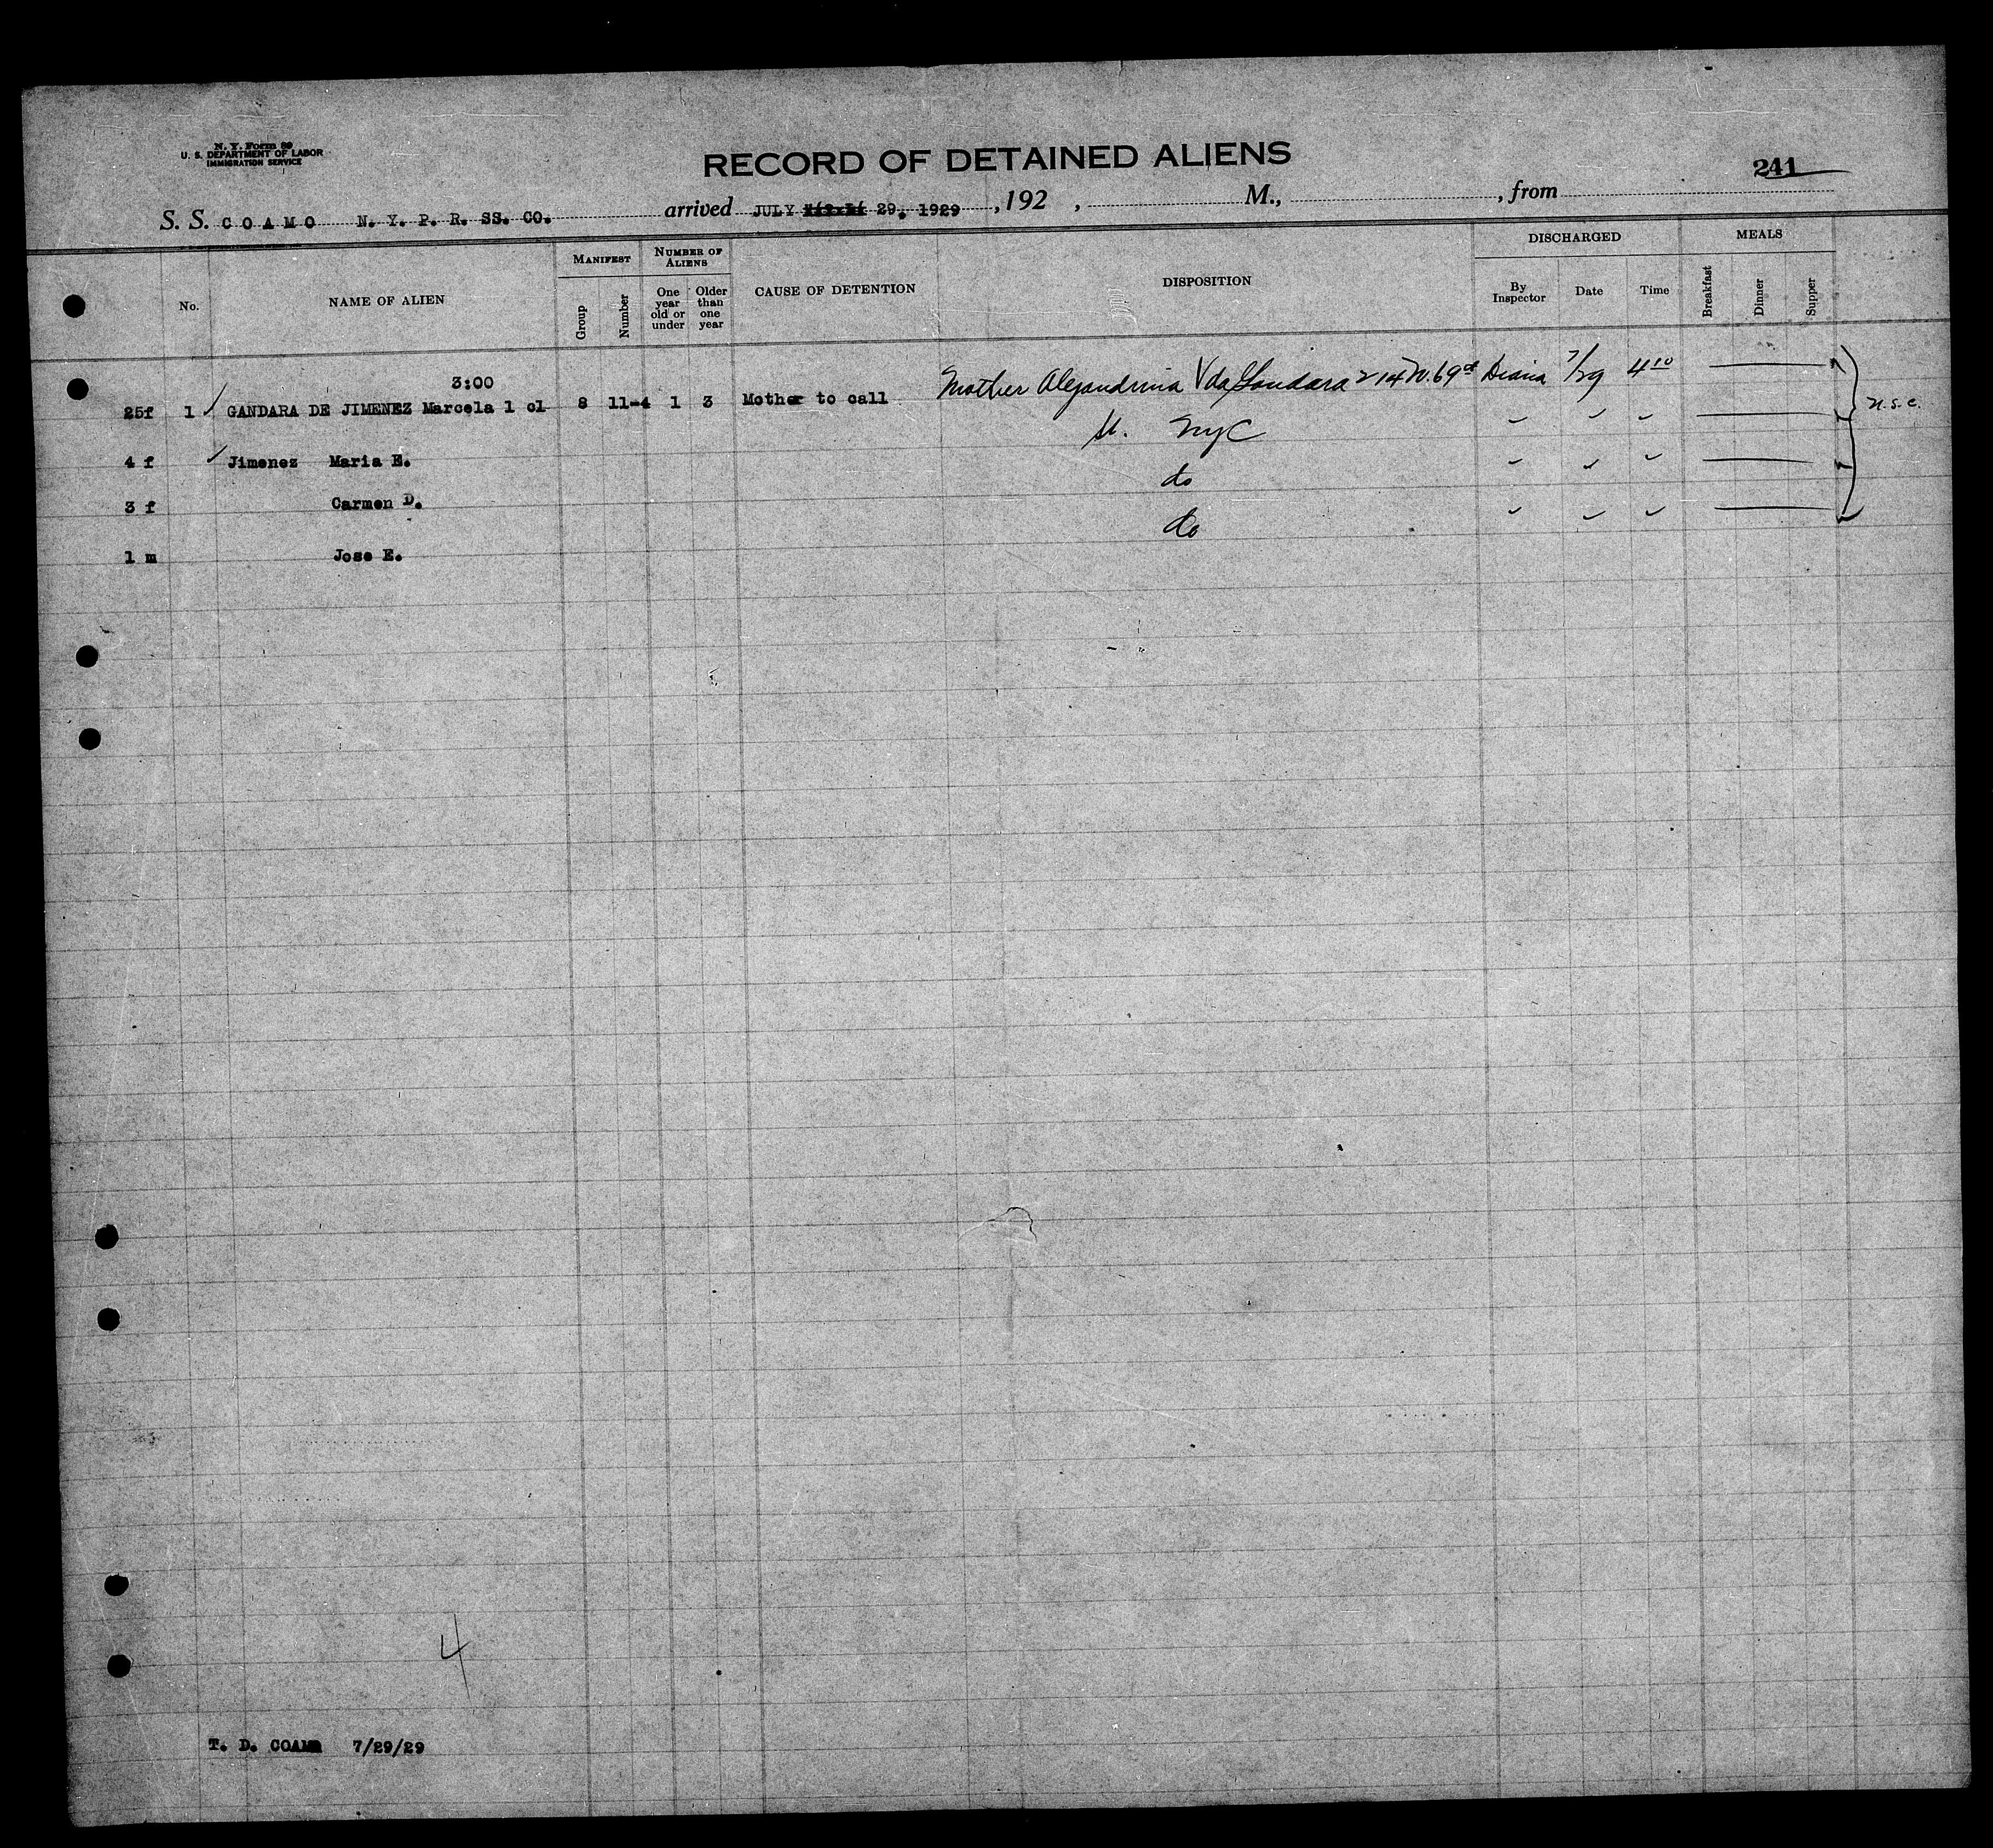 N. Y. Form 89
U. S. DEPARTMENT OF LABOR
IMMIGRATION SERVICE
RECORD OF DETAINED ALIENS
241
S. S. COAMO N. Y. P. R. SS. CO. arrived JULY 29. 1929 , 192 , M., , from
No.
NAME OF ALIEN
MANIFEST
Group
Number
NUMBER OF ALIENS
One year old or under
Older than one year
CAUSE OF DETENTION
DISPOSITION
DISCHARGED
By Inspector
Date
Time
MEALS
Breakfast
Dinner
Supper
3:00
25f 1 GANDARA DE JIMENEZ Marcela 1 cl 8 11-4 1 3 Mother to call Mother Alejandrina Vda Gandara 214 W. 69th Diana 7/29 4 10
St. NYC
n.s.c.
4 f Jimenez Maria E.
do
3 f Carmen D.
do
1 m Jose E.
4
T. D. COAMO 7/29/29